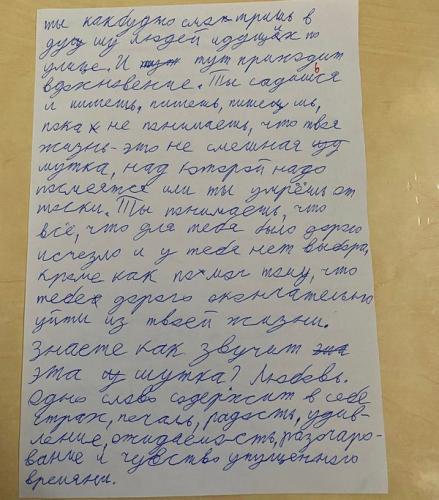 ты как будно смотришь в
душу людей идущих по
улице. И тут приходит
вдохновение. Ты садишься
и пишешь, пишешь, пишешь,
пока не понимаешь, что твоя
жизнь - это не смешная
шутка, над которой надо
посмеятся или ты умрёшь от
тоски. Ты понимаешь, что
всё, что для тебя было дорого
исчезло и у тебя нет выбора,
кроме как помоч тому, что
тебе дорого окончательно
уйти из твоей жизни.
Знаете как звучит
эта шутка? Любовь.
Одно слово содержит в себе
страх, печаль, радость, удив-
ление, ожидаемость, разочаро-
вание и чувство упущенного
времяни.